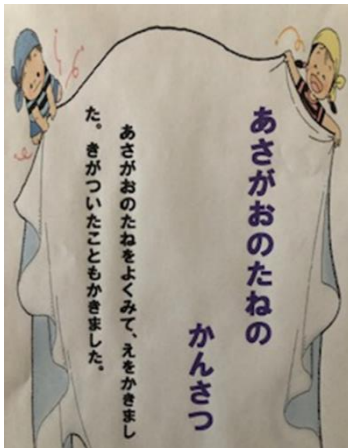 あさがおのたねの
かんさつ
あさがおのたねをよくみて、えをかきまし
た。きがついたこともかきました。